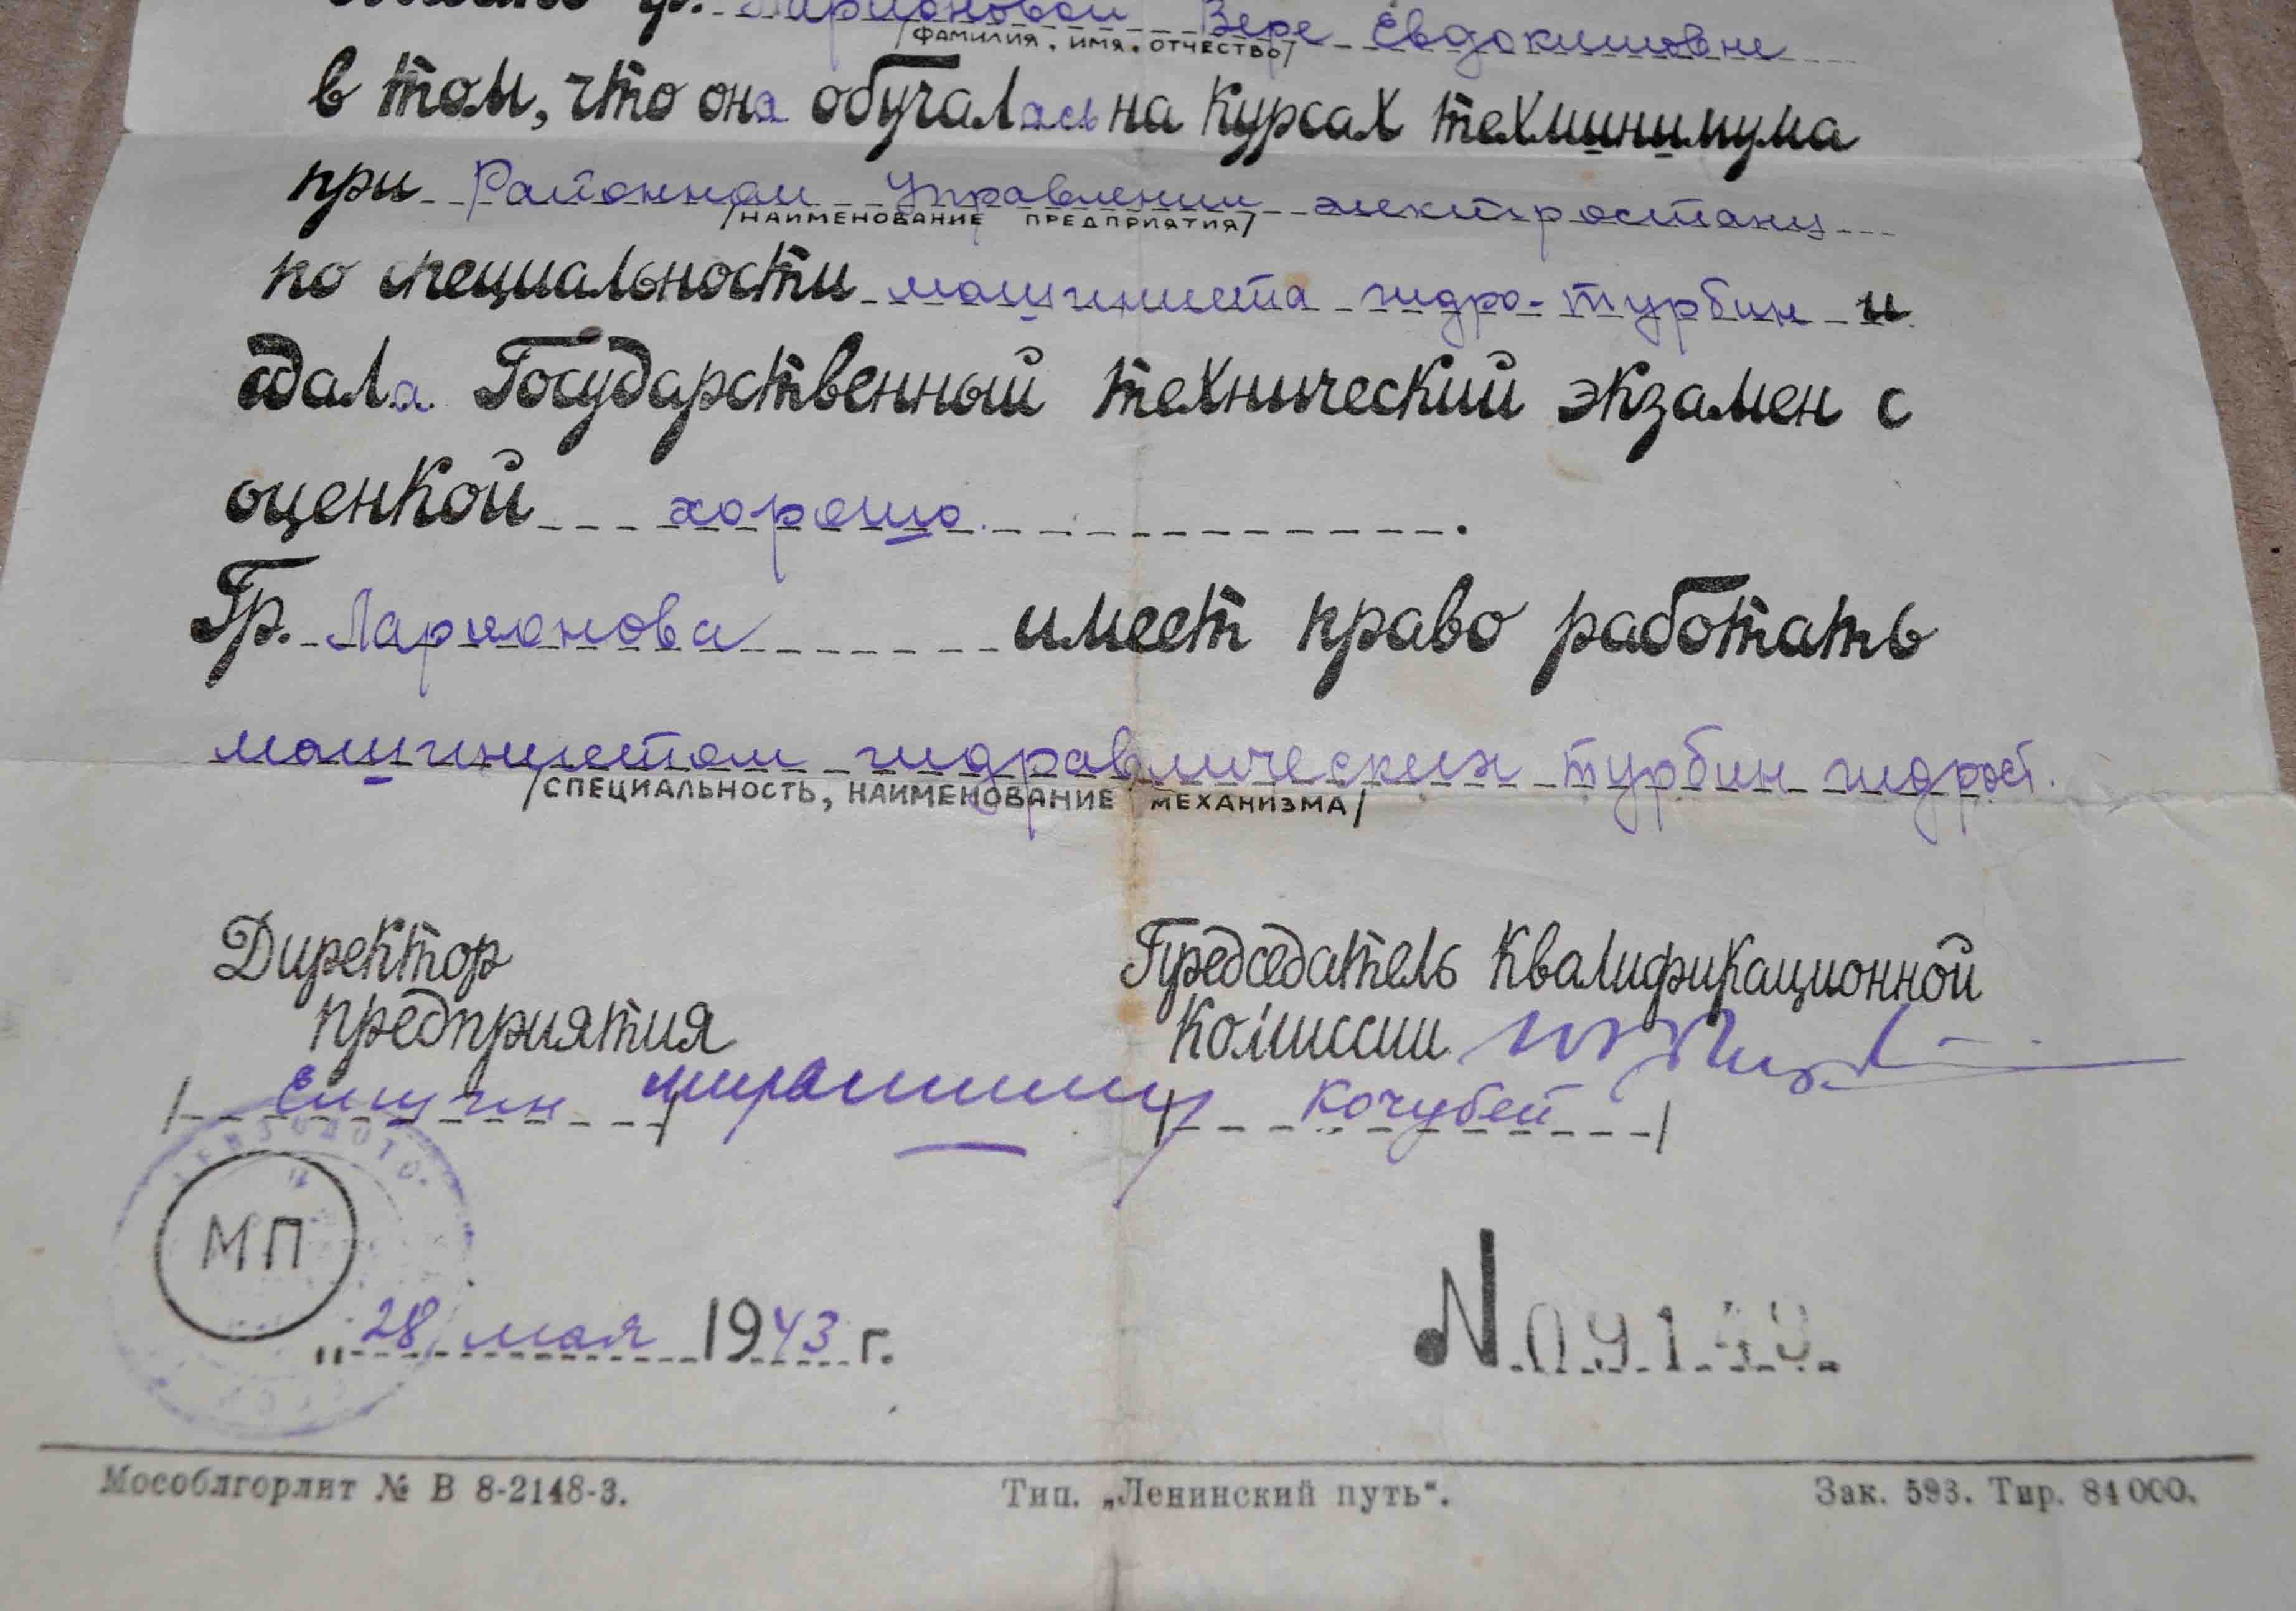 Ларионовой Вере Евдокимовне
/ФАМИЛИЯ, ИМЯ, ОТЧЕСТВО/
в том, что она обучалась на курсах техминимума
при Районном Управлении электростанц
/НАИМЕНОВАНИЕ ПРЕДПРИЯТИЯ/
по специальности машиниста гидро-турбин и
сдала Государственный технический экзамен с
оценкой хорошо.
Гр. Ларионова имеет право работать
машинистом гидравлических турбин гидрост.
/СПЕЦИАЛЬНОСТЬ, НАИМЕНОВАНИЕ МЕХАНИЗМА/
Директор
предприятия
Председатель Квалификационной
Комиссии
/ Кочубей /
ЛЕНЗОЛОТО
МП
„28" мая 1943 г.
N
Мособлгорлит № В 8-2148-3. Тип. „Ленинский путь“. Зак. 593. Тир. 84 000.